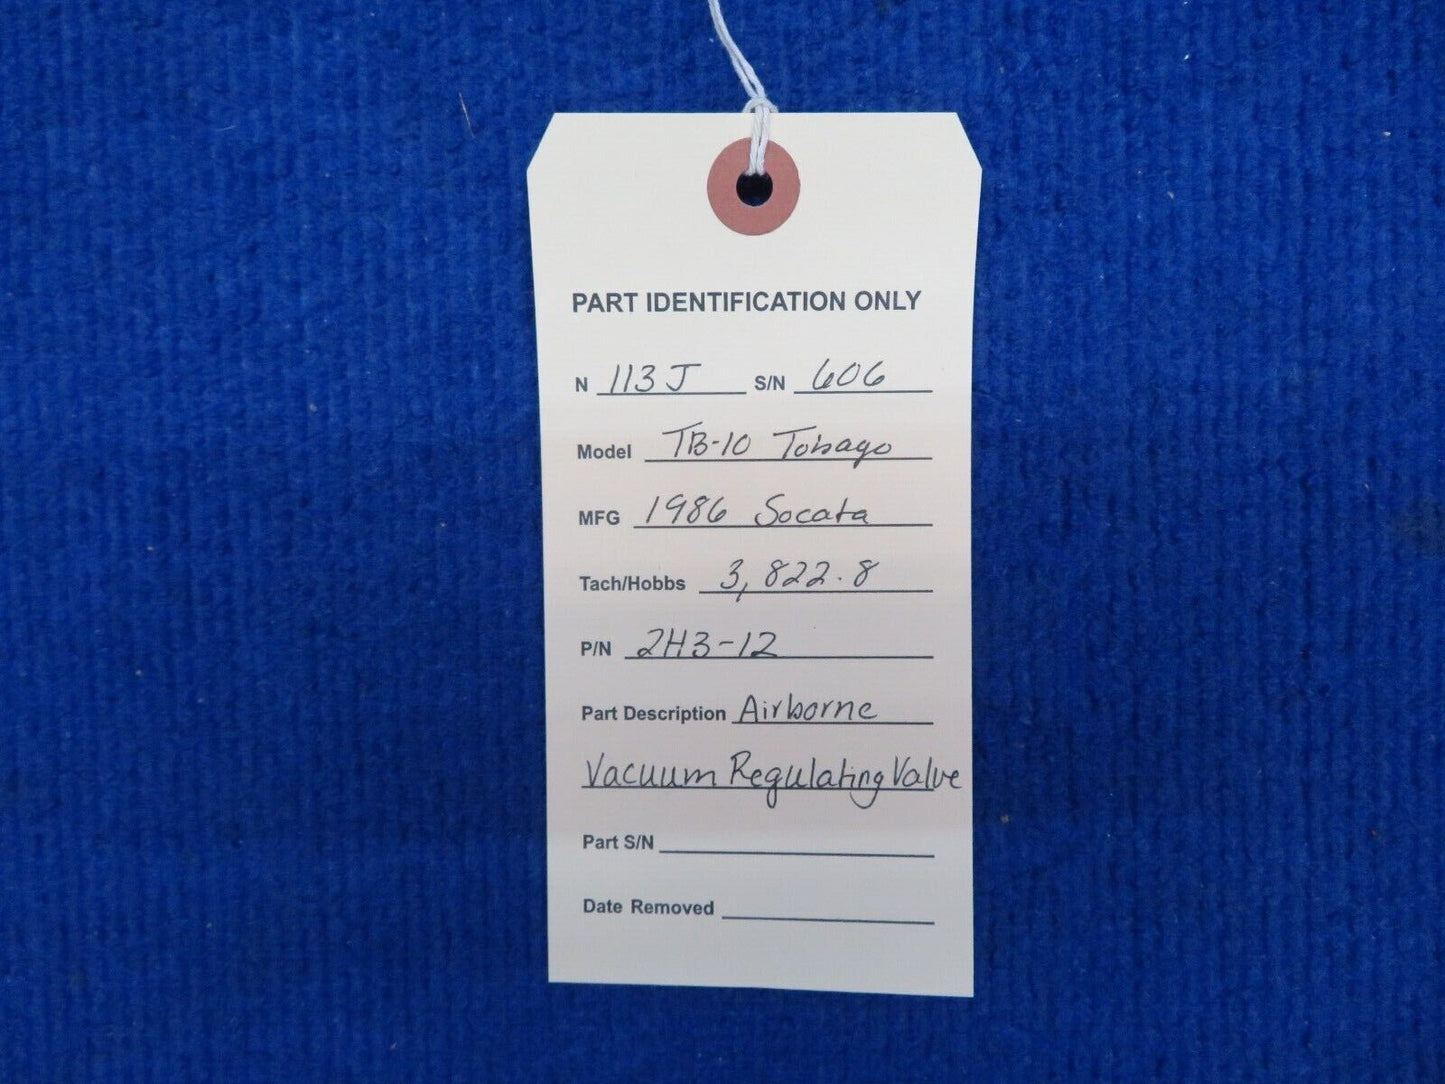 PART IDENTIFICATION ONLY
N 113J S/N 606
Model TB-10 Tobago
MFG 1986 Socata
Tach/Hobbs 3,822.8
P/N 2H3-12
Part Description Airborne
Vacuum Regulating Valve
Part S/N
Date Removed